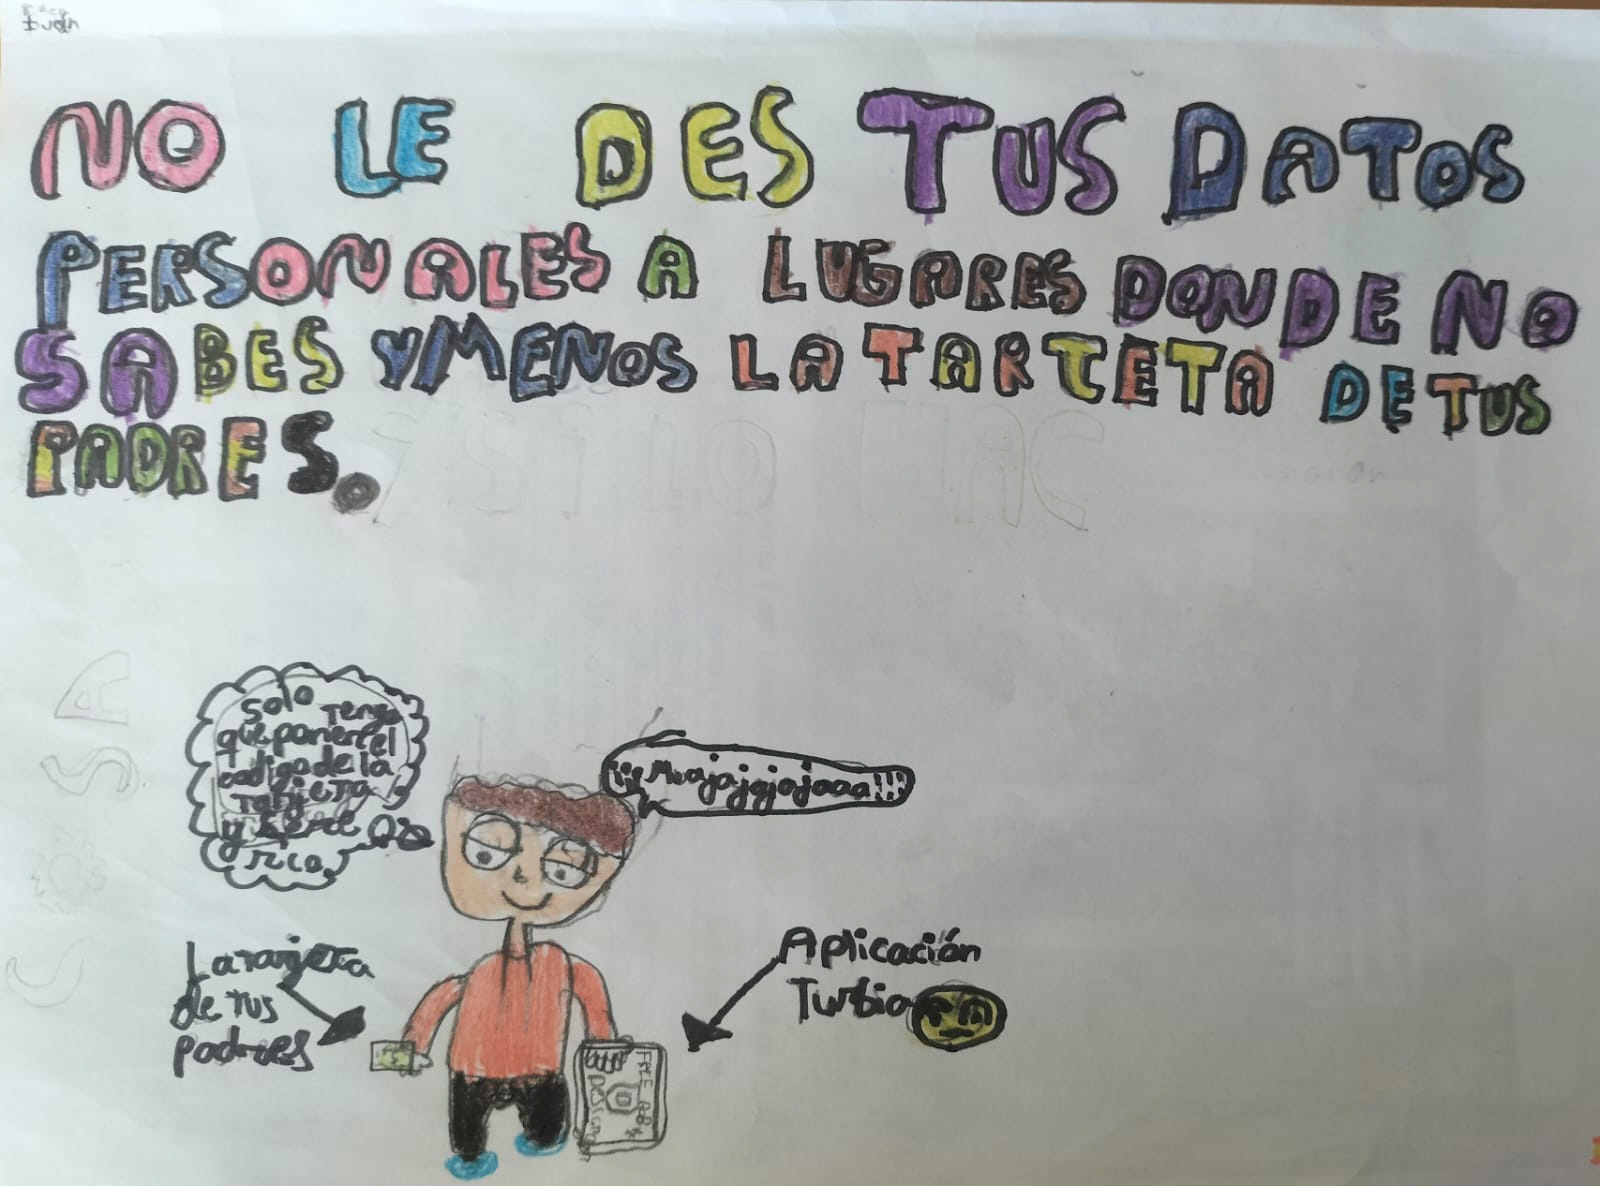 Iván
NO LE DES TUS DATOS
PERSONALES A LUGARES DONDE NO
SABES Y MENOS LA TARCETA DE TUS
PADRES.
Y SI LO HAC
Solo Tengo
que poner el
codigo de la
Tarjeta
y seré
rico
¡¡¡Muajajajajaaa!!!
La tarjeta
de tus
padres
Aplicación
Turbia
FREE